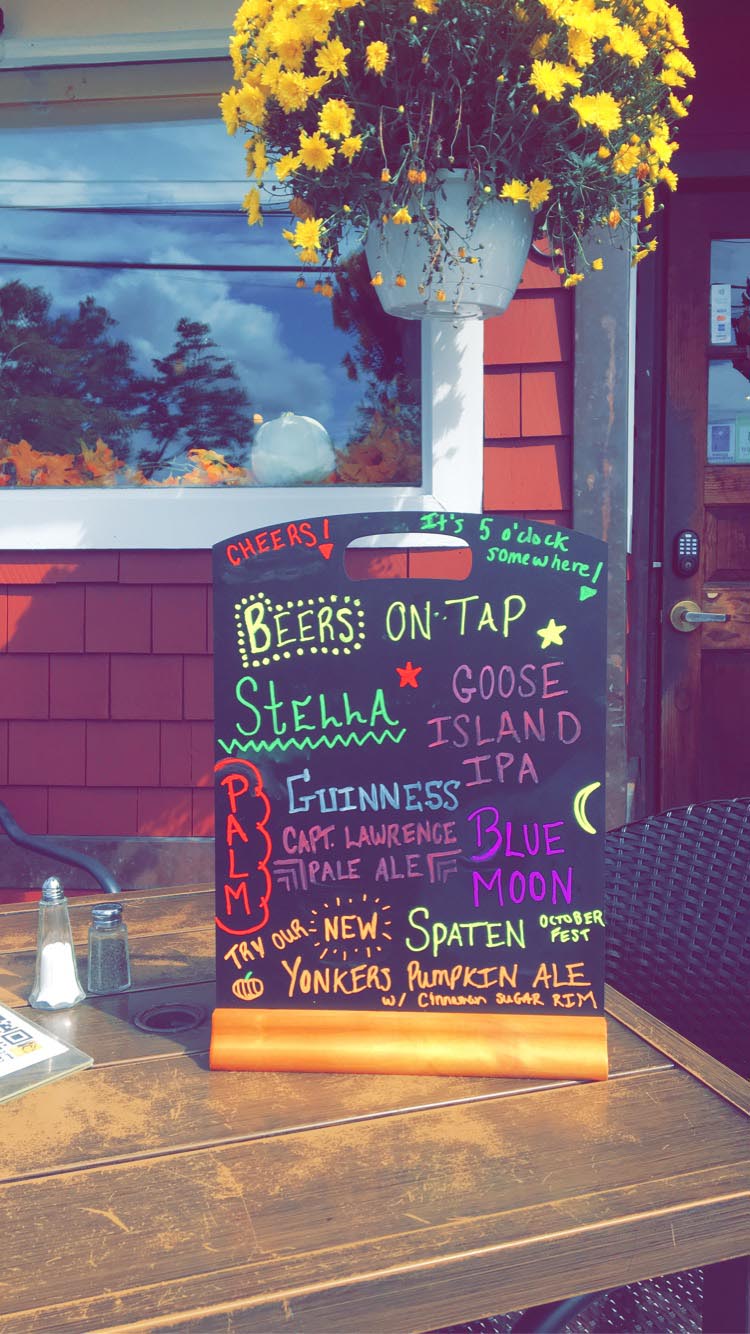 CHEERS!
It's 5 o'clock
somewhere!
BEERS ON TAP
STELLA
GOOSE
ISLAND
IPA
PALM
GUINNESS
CAPT. LAWRENCE
PALE ALE
BLUE
MOON
TRY OUR NEW
SPATEN OCTOBER
FEST
YONKERS PUMPKIN ALE
w/ Cinnamon SUGAR RIM